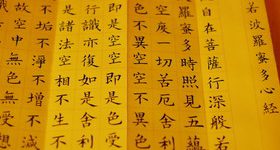 若波羅蜜多心經
自在菩薩行深般若
羅蜜多時照見五蘊
空度一切苦厄舍利
色不異空空不異色
即是空空即是色受
行識亦復如是舍利
是諸法空相不生不
不垢不淨不增不減
故空中無色無受想